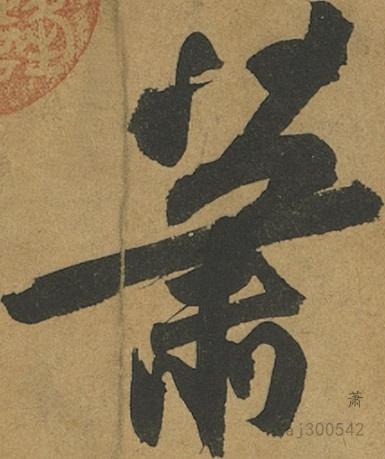 蕭
蕭
aj300542